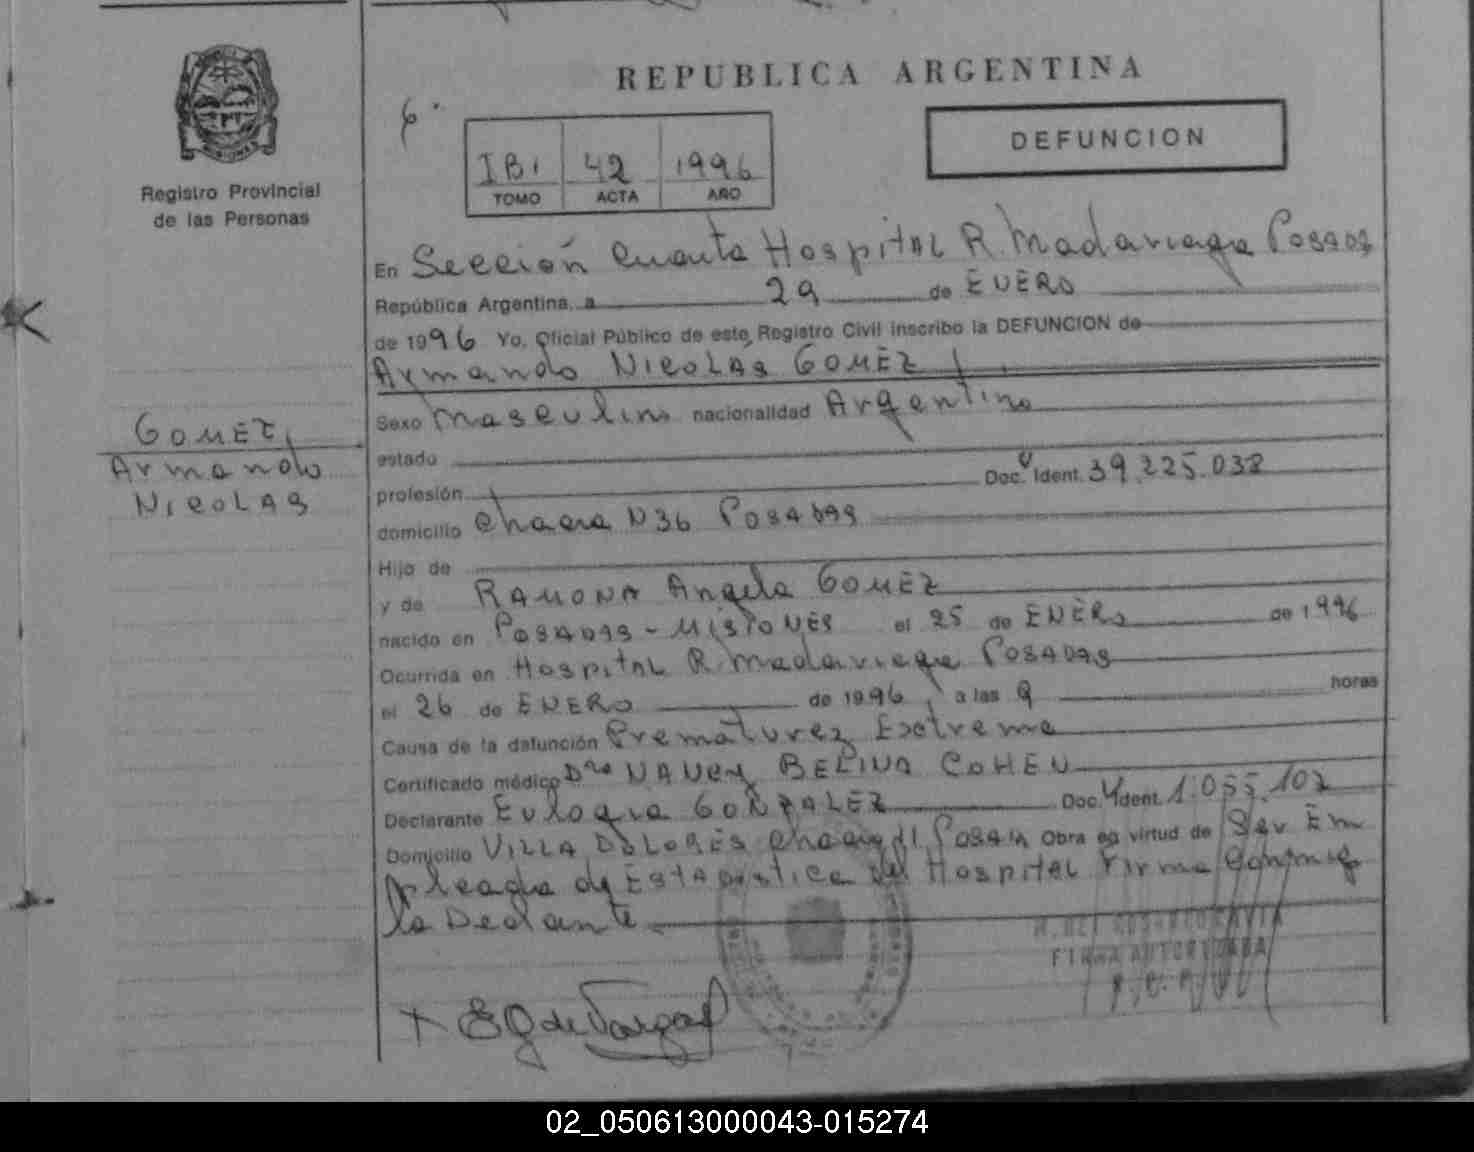 REPUBLICA ARGENTINA
MISIONES
Registro Provincial
de las Personas
6°
IBI 42 1996
TOMO ACTA AÑO
DEFUNCION
En Sección Cuarta Hospital R. Madariaga Posadas
República Argentina, a 29 de ENERO
de 1996 Yo, Oficial Público de este Registro Civil inscribo la DEFUNCION de
Armando NICOLAS GOMEZ
Sexo Masculino nacionalidad Argentino
estado
profesión Doc. Ident. 39.225.038
domicilio Chacra N 36 POSADAS
Hijo de
y de RAMONA Angela GOMEZ
nacido en POSADAS - MISIONES el 25 de ENERO de 1996
Ocurrida en Hospital R. Madariaga POSADAS
el 26 de ENERO de 1996, a las 9 horas
Causa de la defunción Prematurez Extrema
Certificado médico Dra NANCY BELINA COHEN
Declarante Eulogia GONZALEZ Doc. Ident. 1.055.102
Domicilio VILLA DOLORES Obra en virtud de Ser Em
pleada de ESTADISTICA del Hospital Firma
la Declante
GOMEZ,
Armando
NICOLAS
FIRMA AUTORIZADA
02_050613000043-015274